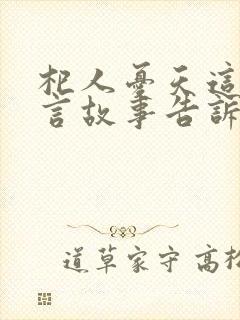 杞人憂天這
言故事告訴
道草家守 高松